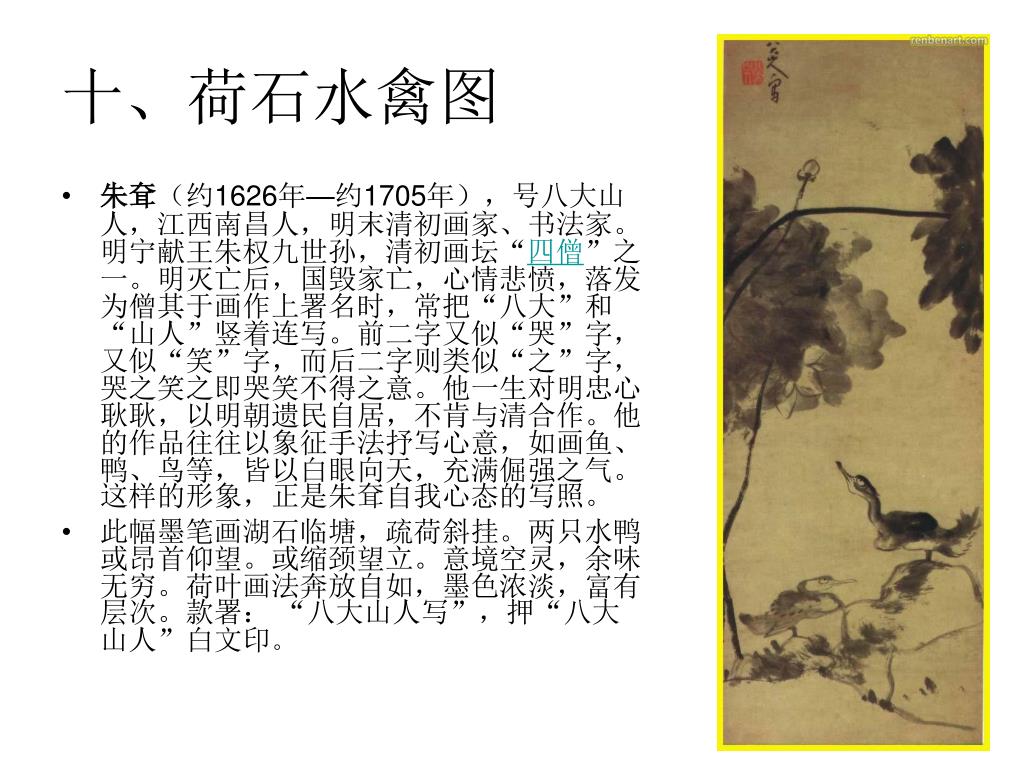 十、荷石水禽图
• 朱耷（约1626年—约1705年），号八大山
人，江西南昌人，明末清初画家、书法家。
明宁献王朱权九世孙，清初画坛“四僧”之
一。明灭亡后，国毁家亡，心情悲愤，落发
为僧其于画作上署名时，常把“八大”和
“山人”竖着连写。前二字又似“哭”字，
又似“笑”字，而后二字则类似“之”字，
哭之笑之即哭笑不得之意。他一生对明忠心
耿耿，以明朝遗民自居，不肯与清合作。他
的作品往往以象征手法抒写心意，如画鱼、
鸭、鸟等，皆以白眼向天，充满倔强之气。
这样的形象，正是朱耷自我心态的写照。
• 此幅墨笔画湖石临塘，疏荷斜挂。两只水鸭
或昂首仰望。或缩颈望立。意境空灵，余味
无穷。荷叶画法奔放自如，墨色浓淡，富有
层次。款署： “八大山人写”，押“八大
山人”白文印。
renbenart.com
八大山人写